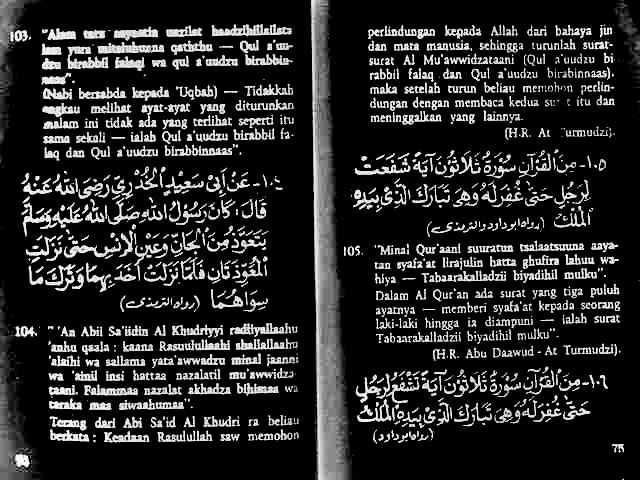 103. "Alam tara aayaatin unzilat haadzihillailata
lam yura mitsluhunna qaththu — Qul a'uu-
dzu birabbil falaqi wa qul a'uudzu birabbin-
naas".
(Nabi bersabda kepada 'Uqbah) — Tidakkah
engkau melihat ayat-ayat yang diturunkan
malam ini tidak ada yang terlihat seperti itu
sama sekali — ialah Qul a'uudzu birabbil fa-
laq dan Qul a'uudzu birabbinnaas".
١٠٤- عَنْ اَبِيْ سَعِيْدِ الْخُدْرِيِّ رَضِيَ اللهُ عَنْهُ
قَالَ: كَانَ رَسُوْلُ اللهِ صَلَّى اللهُ عَلَيْهِ وَسَلَّمَ
يَتَعَوَّذُ مِنَ الْجَانِّ وَعَيْنِ الْاِنْسِ حَتَّى نَزَلَتْ
الْمُعَوِّذَتَانِ فَلَمَّا نَزَلَتْ اَخَذَ بِهِمَا وَتَرَكَ مَا
سِوَاهُمَا (رواه الترمذى)
104. " 'An Abil Sa'iidin Al Khudriyyi radliyallaahu
'anhu qaala : kaana Rasuulullaahi shallallaahu
'alaihi wa sallama yata'awwadzu minal jaanni
wa 'ainil insi hattaa nazalatil mu'awwidza-
taani. Falammaa nazalat akhadza bihimaa wa
taraka maa siwaahumaa".
Terang dari Abi Sa'id Al Khudri ra beliau
berkata : Keadaan Rasulullah saw memohon
perlindungan kepada Allah dari bahaya jin
dan mata manusia, sehingga turunlah surat-
surat Al Mu'awwidzataani (Qul a'uudzu bi
rabbil falaq dan Qul a'uudzu birabinnaas).
maka setelah turun beliau memohon perlin-
dungan dengan membaca kedua surat itu dan
meninggalkan yang lainnya.
(H.R. At Turmudzi).
١٠٥- مِنَ الْقُرْآنِ سُوْرَةٌ ثَلَاثُوْنَ آيَةً شَفَعَتْ
لِرَجُلٍ حَتَّى غُفِرَلَهُ وَهِيَ تَبَارَكَ الَّذِيْ بِيَدِهِ
الْمُلْكُ (رواه ابو داود والترمذى)
105. "Minal Qur'aani suuratun tsalaatsuuna aaya-
tan syafa'at lirajulin hatta ghufira lahuu wa-
hiya — Tabaarakalladzii biyadihil mulku".
Dalam Al Qur'an ada surat yang tiga puluh
ayatnya — memberi syafa'at kepada seorang
laki-laki hingga ia diampuni — ialah surat
Tabaarakalladzii biyadihil mulku".
(H.R. Abu Daawud - At Turmudzi).
١٠٦- مِنَ الْقُرْآنِ سُوْرَةٌ ثَلَاثُوْنَ آيَةً تَشْفَعُ لِرَجُلٍ
حَتَّى غُفِرَلَهُ وَهِيَ تَبَارَكَ الَّذِيْ بِيَدِهِ الْمُلْكُ
(رواه ابو داود)
75